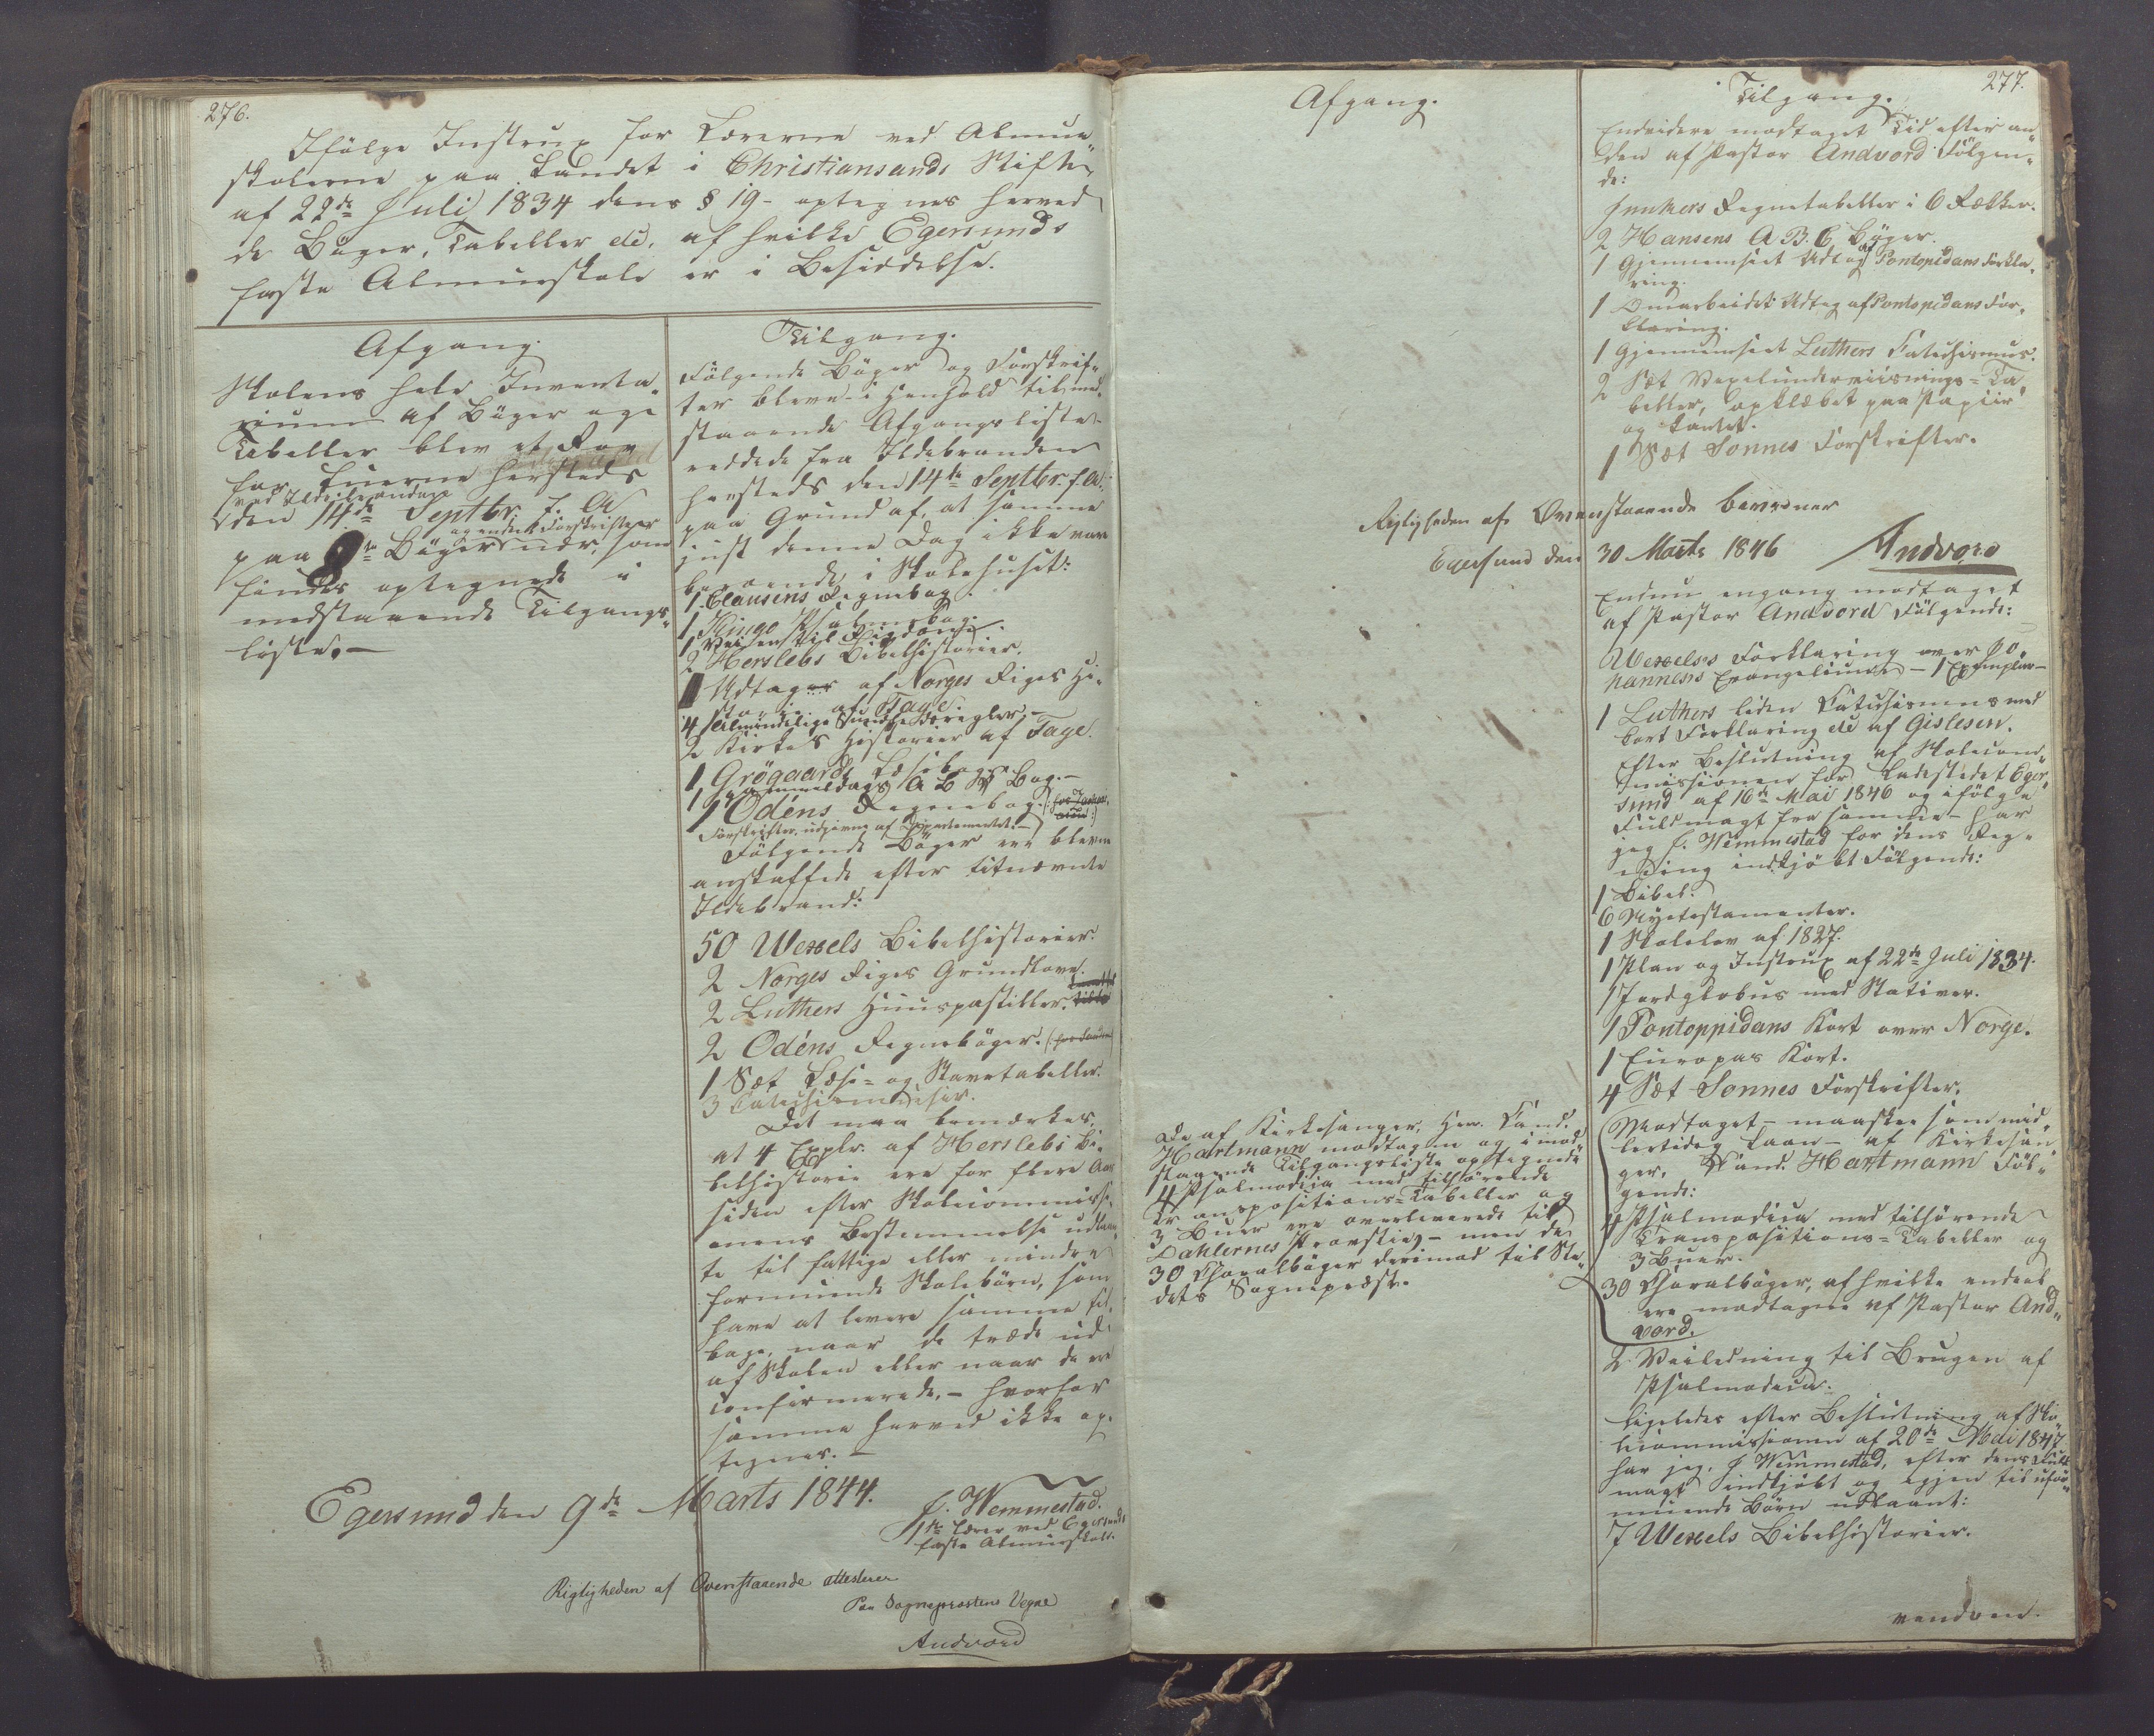 276.
Ifølge Instrux for Lærerne ved Almue-
skolerne paa Landet i Christiansands Stift
af 22de Juli 1834 dens § 19 - optegnes herved
de Bøger, Tabeller etc. af hvilke Egersunds
faste Almueskole er i Besiddelse.
Afgang.
Skolens hele Inventa-
rium af Bøger og
Tabeller blev et Rov
for Luerne hersteds
ved Ildebranden
den 14de Septbr. f. A.
og endeel Forskrifter
paa Bøger nær, som
findes optegnede i
modstaaende Tilgangs-
liste.-
Tilgang.
Følgende Bøger og Forskrif-
ter bleve i Henhold til mod-
staaende Afgangsliste
reddede fra Ildebranden
hersteds den 14de Septbr. f. A.
paa Grund af, at samme
just denne Dag ikke vare
beroende i Skolehuset:
1 Clausens Regnebog.
1 Kingo Psalmebog.
1 Veien til
2 Herslebs Bibelhistorier.
1 Udtog af Norges Riges Hi-
storie af Faye.
4 Almindelige Sundhedsregler,
2 Kirkes Historier af Faye.
1 Grøgaards Læsebog.
1 Gammeldags A B C Bog.-
1 Odéns Regnebog.
Forskrifter, udgivne af Departementet.-
Følgende Bøger ere blevne
anskaffede efter bemeldte
Ildebrand:
50 Wexels Bibelhistorier.
2 Norges Riges Grundlove.
2 Luthers Huuspostiller.
2 Odéns Regnebøger.
1 Sæt Læse- og Stavetabeller.
3 Catechismuser.
Det maa bemærkes,
at 4 Explr. af Herslebs Bi-
belhistorie ere for flere Aar
siden efter Skolecommissi-
onens Bestemmelse udlaan-
te til fattige eller mindre
formuende Skolebørn, som
have at levere samme til-
bage, naar de træde ud
af Skolen eller naar de ere
confirmerede, - hvorfor
samme herved ikke op-
tegnes.-
Egersund den 9de Marts 1844.
Wemmestad.
1ste Lærer ved Egersunds
faste Almueskole.
Rigtigheden af Ovenstaaende attesterer
Paa Sognepræstens Vegne
Andvord
Afgang.
Rigtigheden af Ovenstaaende bevidner
Egersund den 30 Marts 1846 Andvord
De af Kirkesanger, Hr. Cand.
Hartmann modtagne og i mod-
staaende Tilgangsliste optegnede
4 Psalmodica med tilhørende
Transpositions-Tabeller og
3 Buer ere overleverede til
Dahlernes Provstie, - men de
30 Choralbøger derimod til Ste-
dets Sognepræst.
277.
Tilgang.
Endvidere modtaget Tid efter an-
den af Pastor Andvord Følgen-
de:
Junkers Regnetabeller i 6 Rækker.
2 Hansens A. B. C. Bøger.
1 Gjennemseet Udtog af Pontopidans Forkla-
ring.
1 Omarbeidet Udtog af Pontopidans For-
klaring.
1 Gjennemseet Luthers Catechismus.
2 Sæt Vexelunderviisnings-Ta-
beller, opklæbet paa Papiir
og kantet.
1 Sæt Sonnes Forskrifter.
Endnu engang modtaget
af Pastor Andvord Følgende:
Wexels's Forklaring over Jo-
hannes's Evangelium - 1 Exemplar -
1 Luthers liden Catechismus med
kort Forklaring etc af Gislesen.
Efter Beslutning af Skolecom-
missionen for Ladestedet Eger-
sund af 16de Mai 1846 og ifølge
Fuldmagt fra samme - har
jeg Wemmestad for dens Reg-
ning indkjøbt Følgende:
1 Bibel.
6 Nyetestamenter.
1 Skolelov af 1827.
1 Plan og Instrux af 22de Juli 1834.
1 Jordglobus med Stativer.
1 Pontoppidans Kort over Norge.
1 Europas Kort.
4 Sæt Sonnes Forskrifter.
Modtaget - maaskee som mid-
lertidig Laan - af Kirkesan-
ger, Cand. Hartmann Føl-
gende:
4 Psalmodica med tilhørende
Transpositions-Tabeller og
3 Buer.
30 Choralbøger, af hvilke endeel
ere modtagne af Pastor And-
vord.
2 Veiledning til Brugen af
Psalmodica.
Ligeledes efter Beslutning af Sko-
lecommissionen af 20de Mai 1847
har jeg, Wemmestad, efter dens Fuld-
magt indkjøbt og igjen til ufor-
muende Børn udlaant:
7 Wexels Bibelhistorier.
vendom.